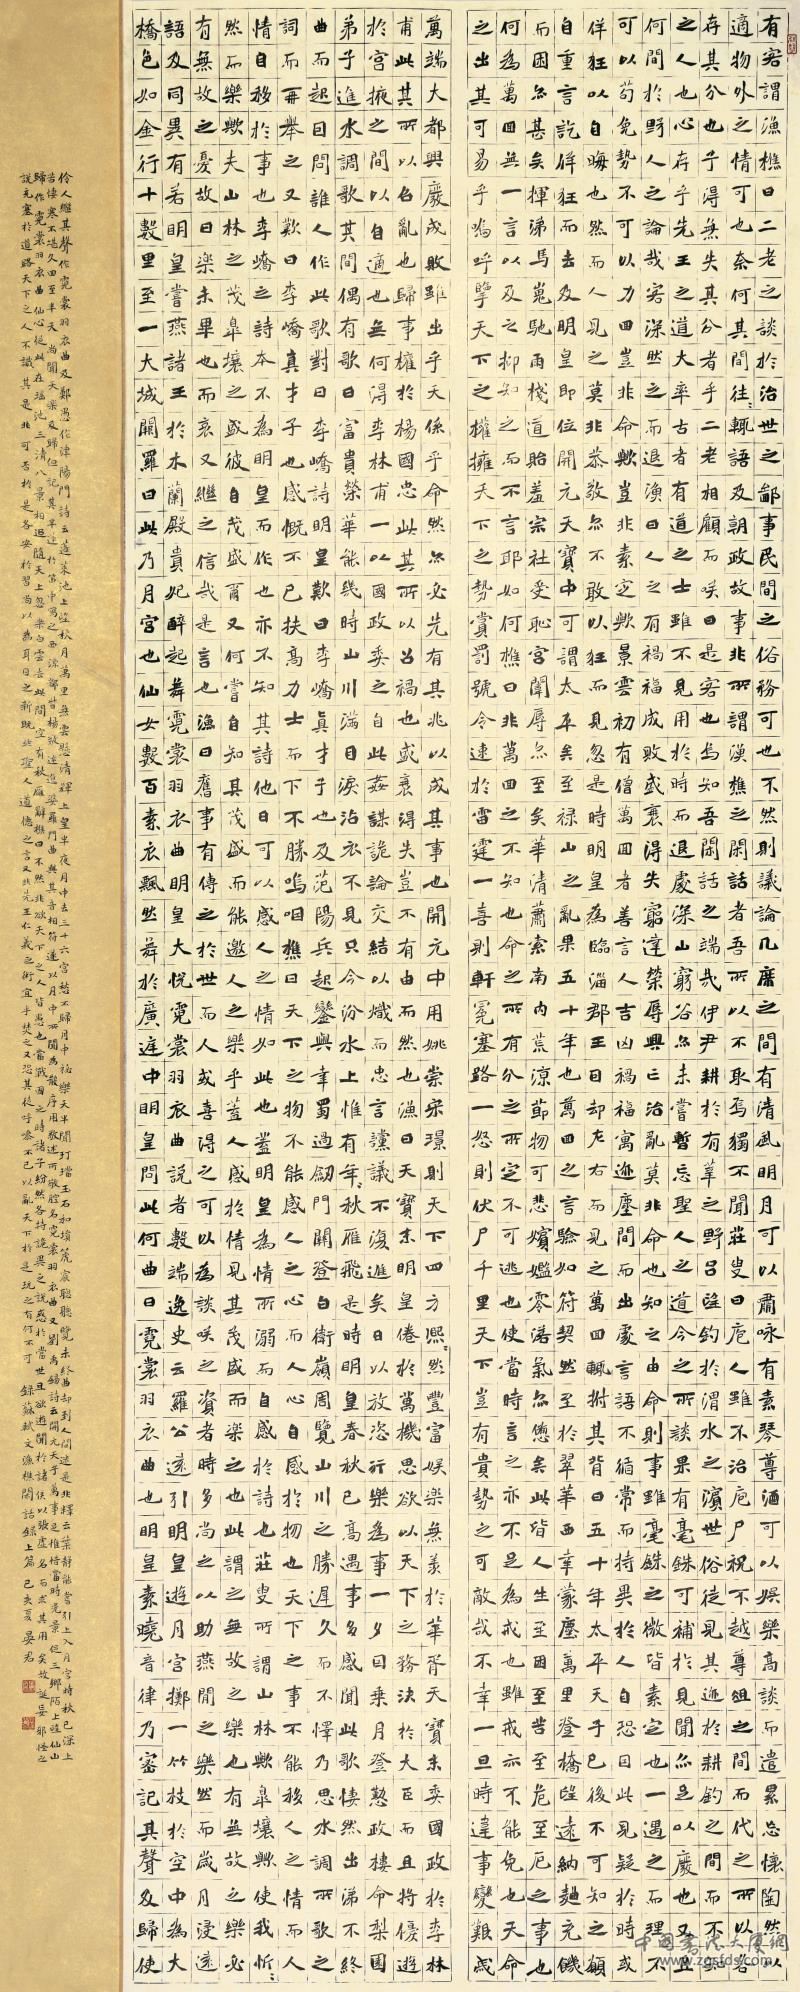 有客謂漁樵曰二老之談於治世之鄙事民間之俗務可也不然則議論几席之間有清風明月可以肅咏有素琴尊酒可以娛樂高談而遣累忘懷陶然以
適物外之情可也奈何其間往往輒語及朝政故事非所謂漁樵之閑話者吾所以不取焉獨不聞莊叟曰庖人雖不治庖尸祝不越尊俎之間而代之所以各
存其分也子得無失其分者乎二老相顧而咲曰是客也烏知吾閑話之端哉伊尹耕於有莘之野呂望釣於渭水之濱世俗徒見其迹於耕釣之間而不知
之人也心存乎先王之道大率古者有道之士雖不見用於時而退處深山窮谷亦未嘗暫忘聖人之道今之所談果有毫銖可補於見聞亦足以廢也又且
何間於野人之論哉客深然之而退漁曰人之有禍福成敗盛衰得失窮達榮辱興亡治亂莫非命也知之由命則事雖毫銖之微皆素定也一遇之而理不
可以苟免勢不可以力回豈非命歟豈非素定歟景雲初有僧萬回者善言人吉凶禍福寓迹塵間而出處言語不循常而持異於人自恐因此見疑於時或
佯狂以自晦也然而人見之莫非恭敬亦不敢以狂而見忽是時明皇為臨淄郡王日却左右而見之萬回輒拊其背曰五十年太平天子已後不可知之願
自重言訖佯狂而去及明皇即位開元天寶中可謂太平矣至祿山之亂果五十年也萬回之言驗如符契然至於翠華西幸蒙塵萬里登橋望遠納麵充饑
而困亦甚矣揮涕馬嵬馳雨棧道貽羞宗社受恥宮闈辱亦至矣華清蕭索南內荒涼節物可悲嬪嬙零落氣亦憊矣此皆人生至困至苦至危至厄之事也
何為萬回無一言以及之抑知之而不言耶如何樵曰非萬回之不知也命之所有分之所定不可逃也使當時言之亦不足為戒也雖戒亦不能免也天命
之出其可易乎嗚呼擎天下之權擁天下之勢賞罰號令速於雷霆一喜則軒冕塞路一怒則伏尸千里天下豈有貴勢之可敵哉不幸一旦時違事變難戚
萬端大都興廢成敗雖出乎天係乎命然亦必先有其兆以成其事也開元中用姚崇宋璟則天下四方熙熙然豐富娛樂無羨於華胥天寶末委國政於李林
甫此其所以召亂也歸事權於楊國忠此其所以召禍也盛衰得失豈不有由而然也漁曰天寶末明皇倦於萬機思欲以天下之務決於大臣而且將優遊
於宮掖之間以自適也無何得李林甫一以國政委之自此姦謀詭論交結以熾而忠言讜議不復進矣日以放恣行樂為事一夕因乘月登懃政樓命梨園
弟子進水調歌其間偶有歌曰富貴榮華能幾時山川滿目淚沾衣不見只今汾水上惟有年年秋雁飛是時明皇春秋已高遇事多感聞此歌悽然出涕不終
曲而起曰問誰人作此歌對曰李嶠詩明皇歎曰李嶠真才子也及范陽兵起鑾輿幸蜀過劒門關登白衛嶺周覽山川之勝遲久而不懌乃思水調所歌之
詞而再舉之又歎曰李嶠真才子也感慨不已扶高力士而下不勝嗚咽樵曰天下之物不能感人之心而人心自感於物也天下之事不能移人之情而人
情自移於事也李嶠之詩本不為明皇而作也亦不知其詩他日可以感人之情如此也蓋明皇為情所溺而自感於詩也莊叟所謂山林歟皐壤歟使我忻忻
然而樂歟夫山林之茂皐壤之盛彼自茂盛爾又何嘗自知其茂盛而能邀人之樂乎蓋人感於情見其茂盛而樂之也葉之無故之樂也有無故之樂必
有無故之憂故曰樂未畢也而哀又繼之信哉是言也漁曰舊事有傳之於世而人或喜得之可以為談咲之資者時多尚之以助燕閒之樂然而歲月浸遠
語及同異有若明皇嘗燕諸王於木蘭殿貴妃醉起舞霓裳羽衣曲明皇大悅霓裳羽衣曲說者數端逸史云羅公遠引明皇遊月宮擲一竹枝於空中為大
橋色如金行十數里至一大城闕羅曰此乃月宮也仙女數百素衣飄然舞於廣庭中明皇問此何曲曰霓裳羽衣曲也明皇素曉音律乃密記其聲及歸使
伶人繼其聲作霓裳羽衣曲及鄭愚作津陽門詩云蓬萊池上望秋月萬里無雲懸清輝上皇半夜月中去三十六宮愁不歸月中秘樂天半聞玎璫玉石和塤篪宸聰聽覽未終曲却到人間迷是非釋云葉靜能嘗引上入月宮時秋已深上
苦悽寒不堪久回至半天尚聞天樂及歸但記其半遂於笛中寫之西涼都督楊敬述進婆羅門曲與其音相符遂以月中所聞為散序用敬述所進為腔名霓裳羽衣曲又劉禹錫詩云開元天子萬事足惟惜當時光景促三鄉陌上望仙山
歸作霓裳羽衣曲仙心從此在瑤池三清八景相追隨天上忽乘白雲去此間空有秋風辭樵曰不然非欲天下之人皆愚也當戰國之時諸子紛然各持詭異之說惑於當世且欲遊聞於諸侯以張虛名而求其用矣故誕妄邪怪之
說充塞於道路天下之人不識其是非可否於是各安於習尚以為耳目之新既非聖人道德之言又非先王仁義之術宜乎焚之又恐其徒呼嗥不已以亂天下於是坑之有何不可 錄蘇軾文漁樵閑話錄上篇 己亥夏晏君
中国书法大厦网
www.zgsfds.com